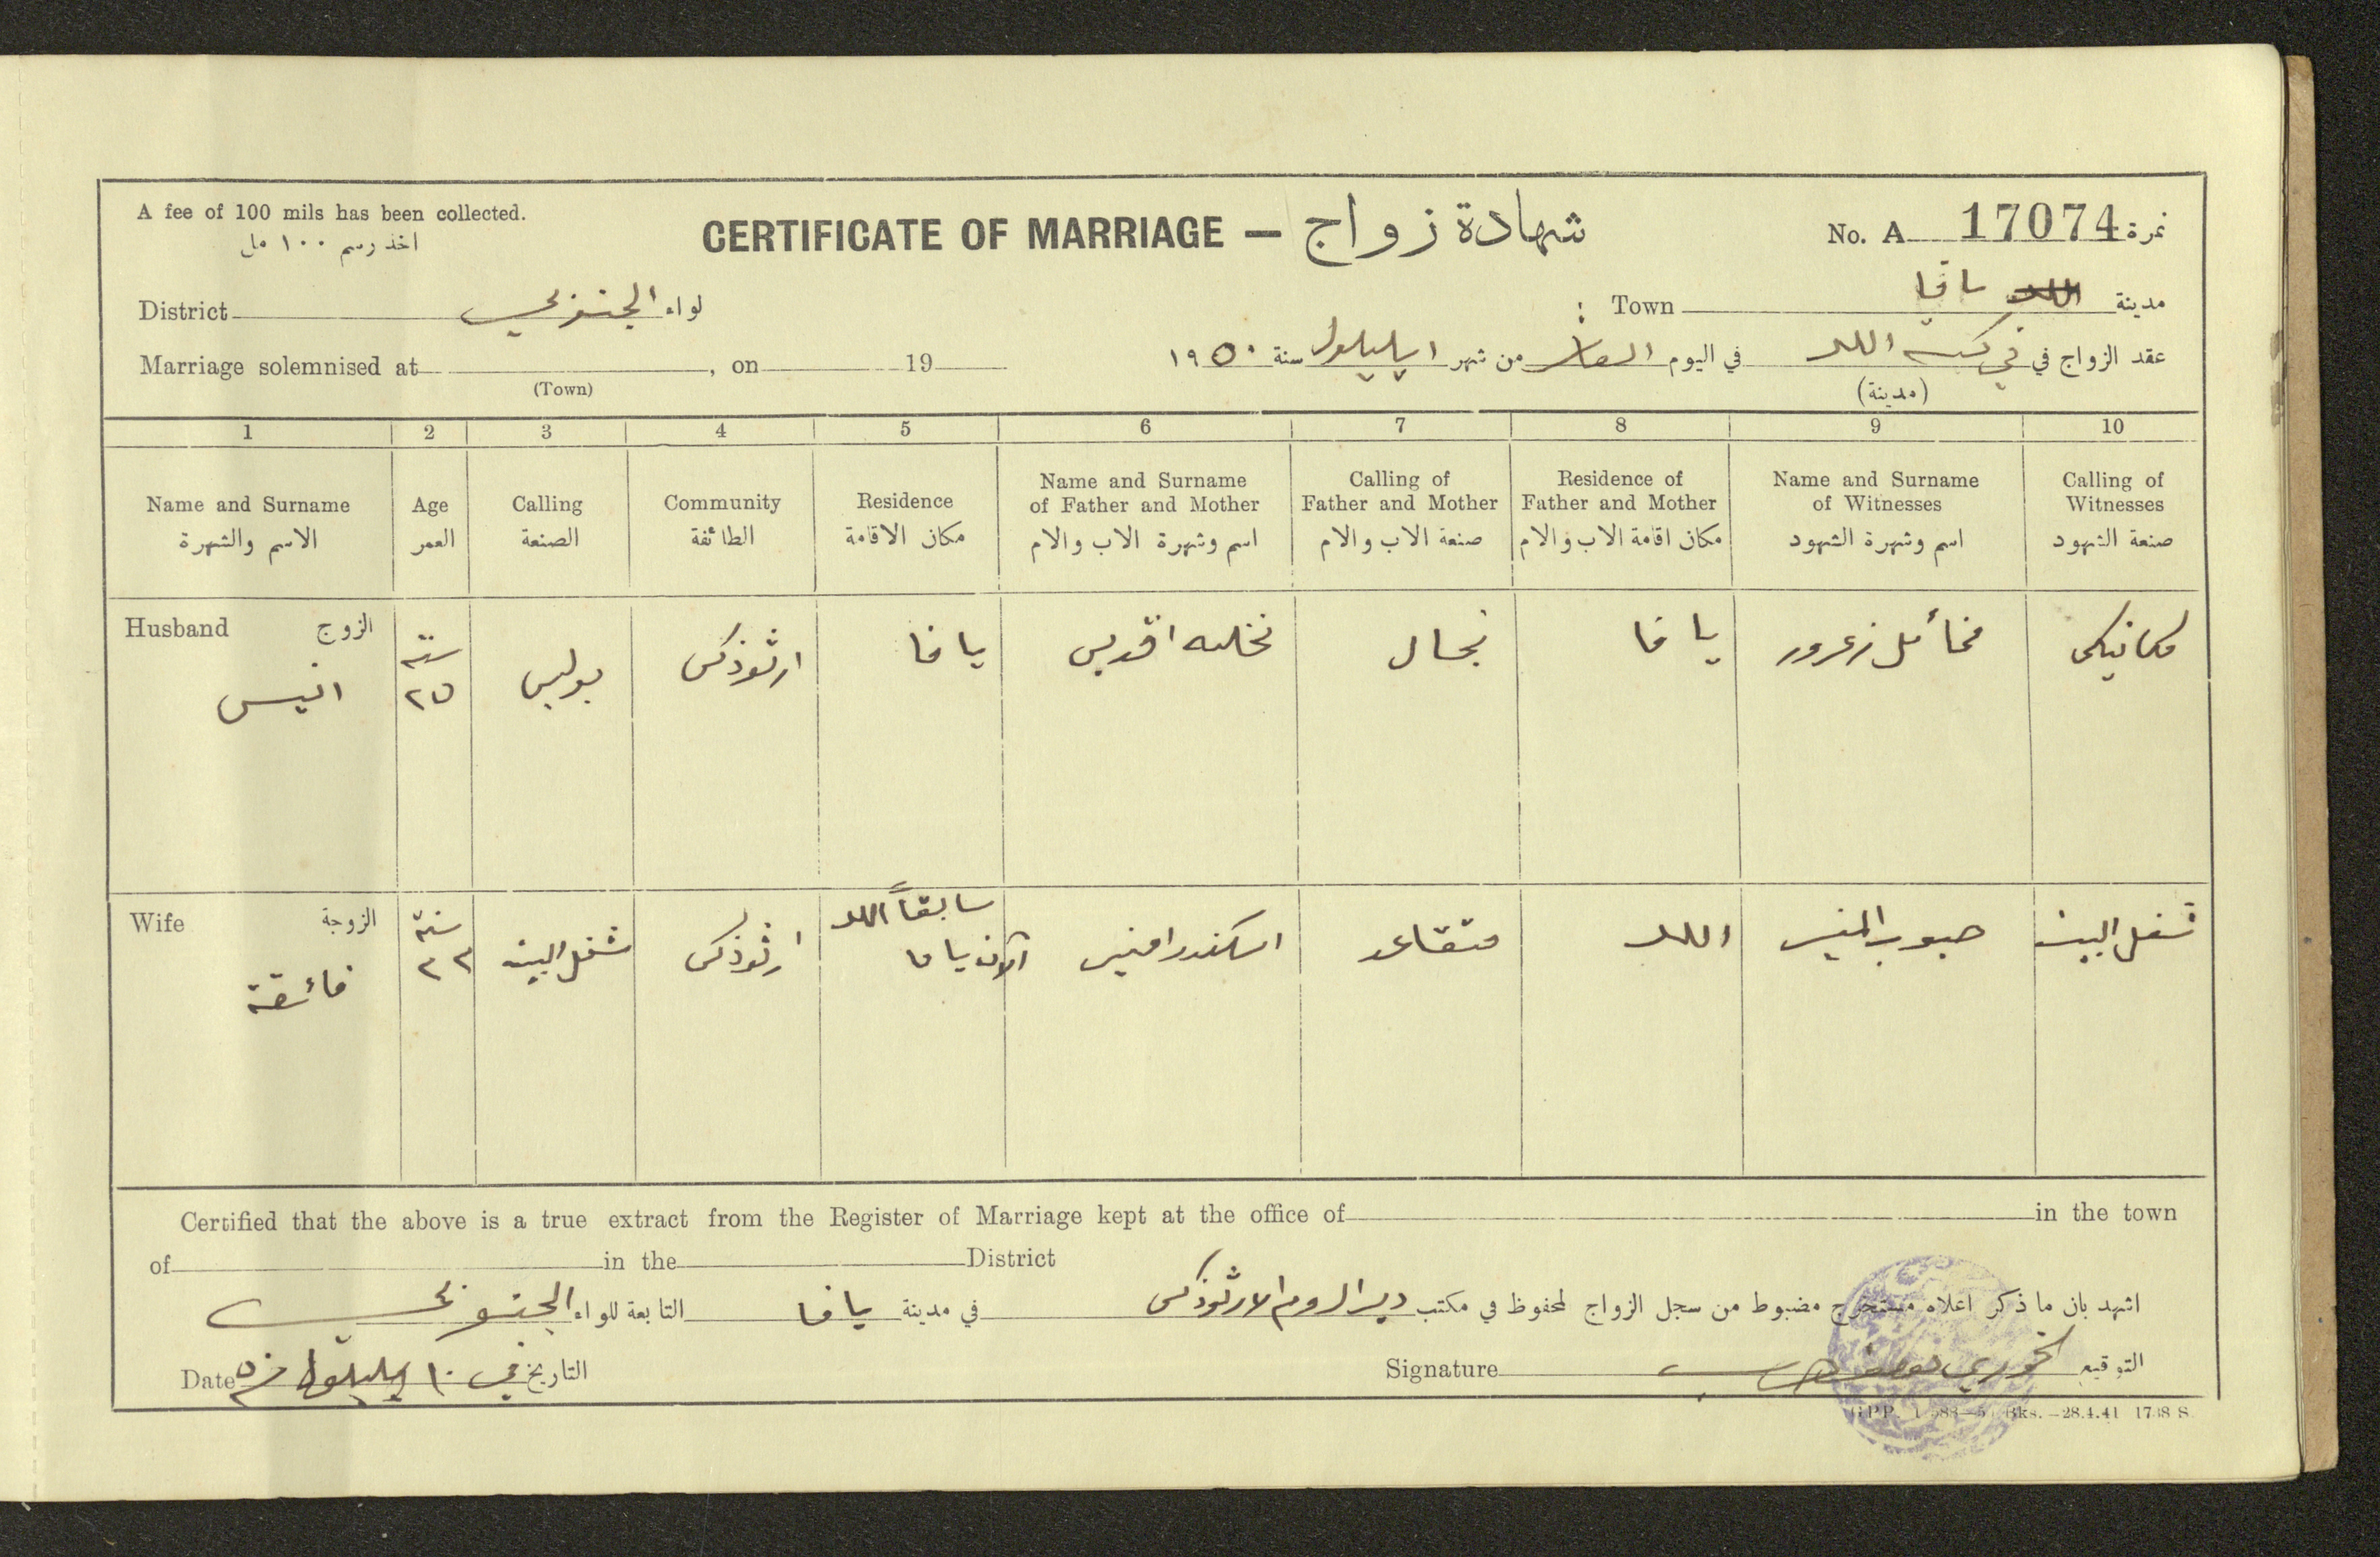 A fee of 100 mils has been collected.
اخذ رسم ١٠٠ مل
CERTIFICATE OF MARRIAGE — شهادة زواج
No. A 17074 نمرة
District لواء الجنوبي
Town مدينة اللد يافا
Marriage solemnised at , on 19
(Town)
عقد الزواج في في كنيسة اللد في اليوم العاشر من شهر ايليلول سنة ١٩٥٠
(مدينة)
1 2 3 4 5 6 7 8 9 10
Name and Surname الاسم والشهرة
Age العمر
Calling الصنعة
Community الطائفة
Residence مكان الاقامة
Name and Surname of Father and Mother اسم وشهرة الاب والام
Calling of Father and Mother صنعة الاب والام
Residence of Father and Mother مكان اقامة الاب والام
Name and Surname of Witnesses اسم وشهرة الشهود
Calling of Witnesses صنعة الشهود
Husband الزوج
انيس
سنة ٢٥
بوليس
ارثوذكس
يافا
نخله
يافا
مخائل زعرور
مكانيكي
Wife الزوجة
فائقة
سنة ٢٣
شغل البيت
ارثوذكس
سابقاً اللد
الآن يافا
اسكندر
متقاعد
اللد
شغل البيت
Certified that the above is a true extract from the Register of Marriage kept at the office of in the town
of in the District
اشهد بان ما ذكر اعلاه مستخرج مضبوط من سجل الزواج المحفوظ في مكتب دير الروم الارثوذكس في مدينة يافا التابعة للواء الجنوبي
Date التاريخ في ١٠ ايليلول سنة ٥٠
Signature التوقيع
الخوري
G.P.P. 1588—5 Bks.—28.4.41 1738 S.